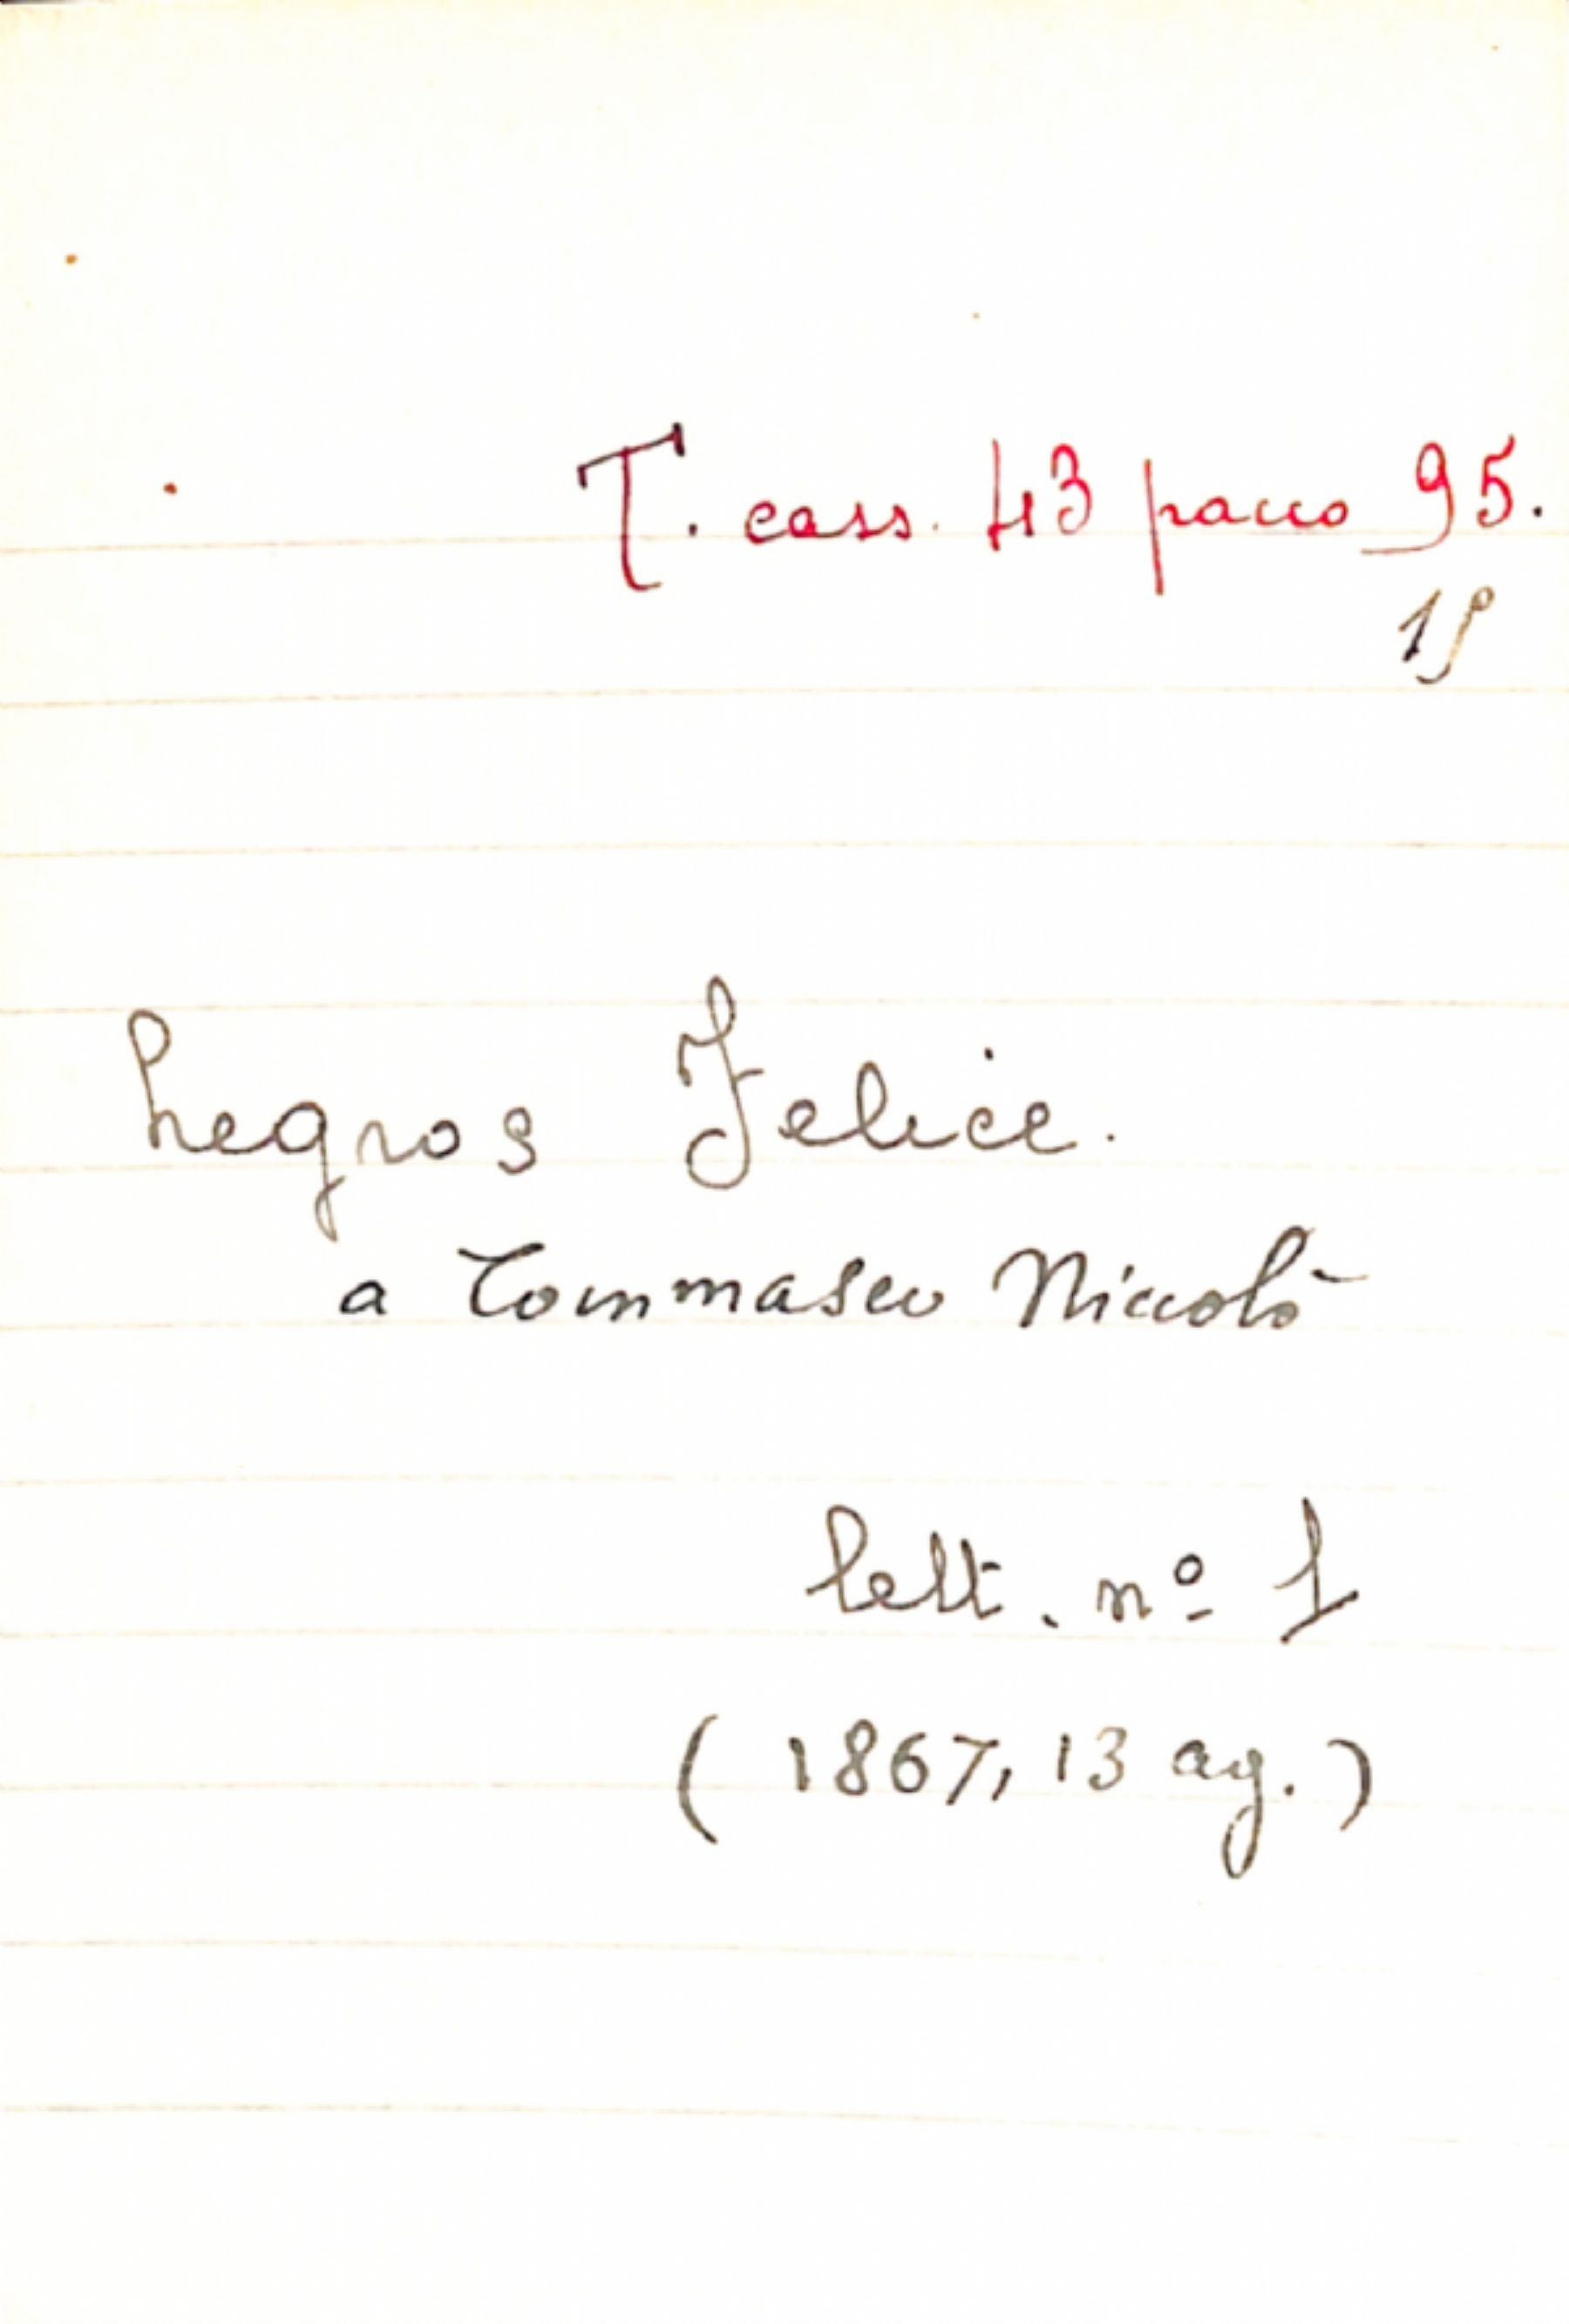 T. cass. 43 pacco 95.
15
Legros Felice.
a Tommaseo Niccolò
lett. nº 1
(1867, 13 ag.)